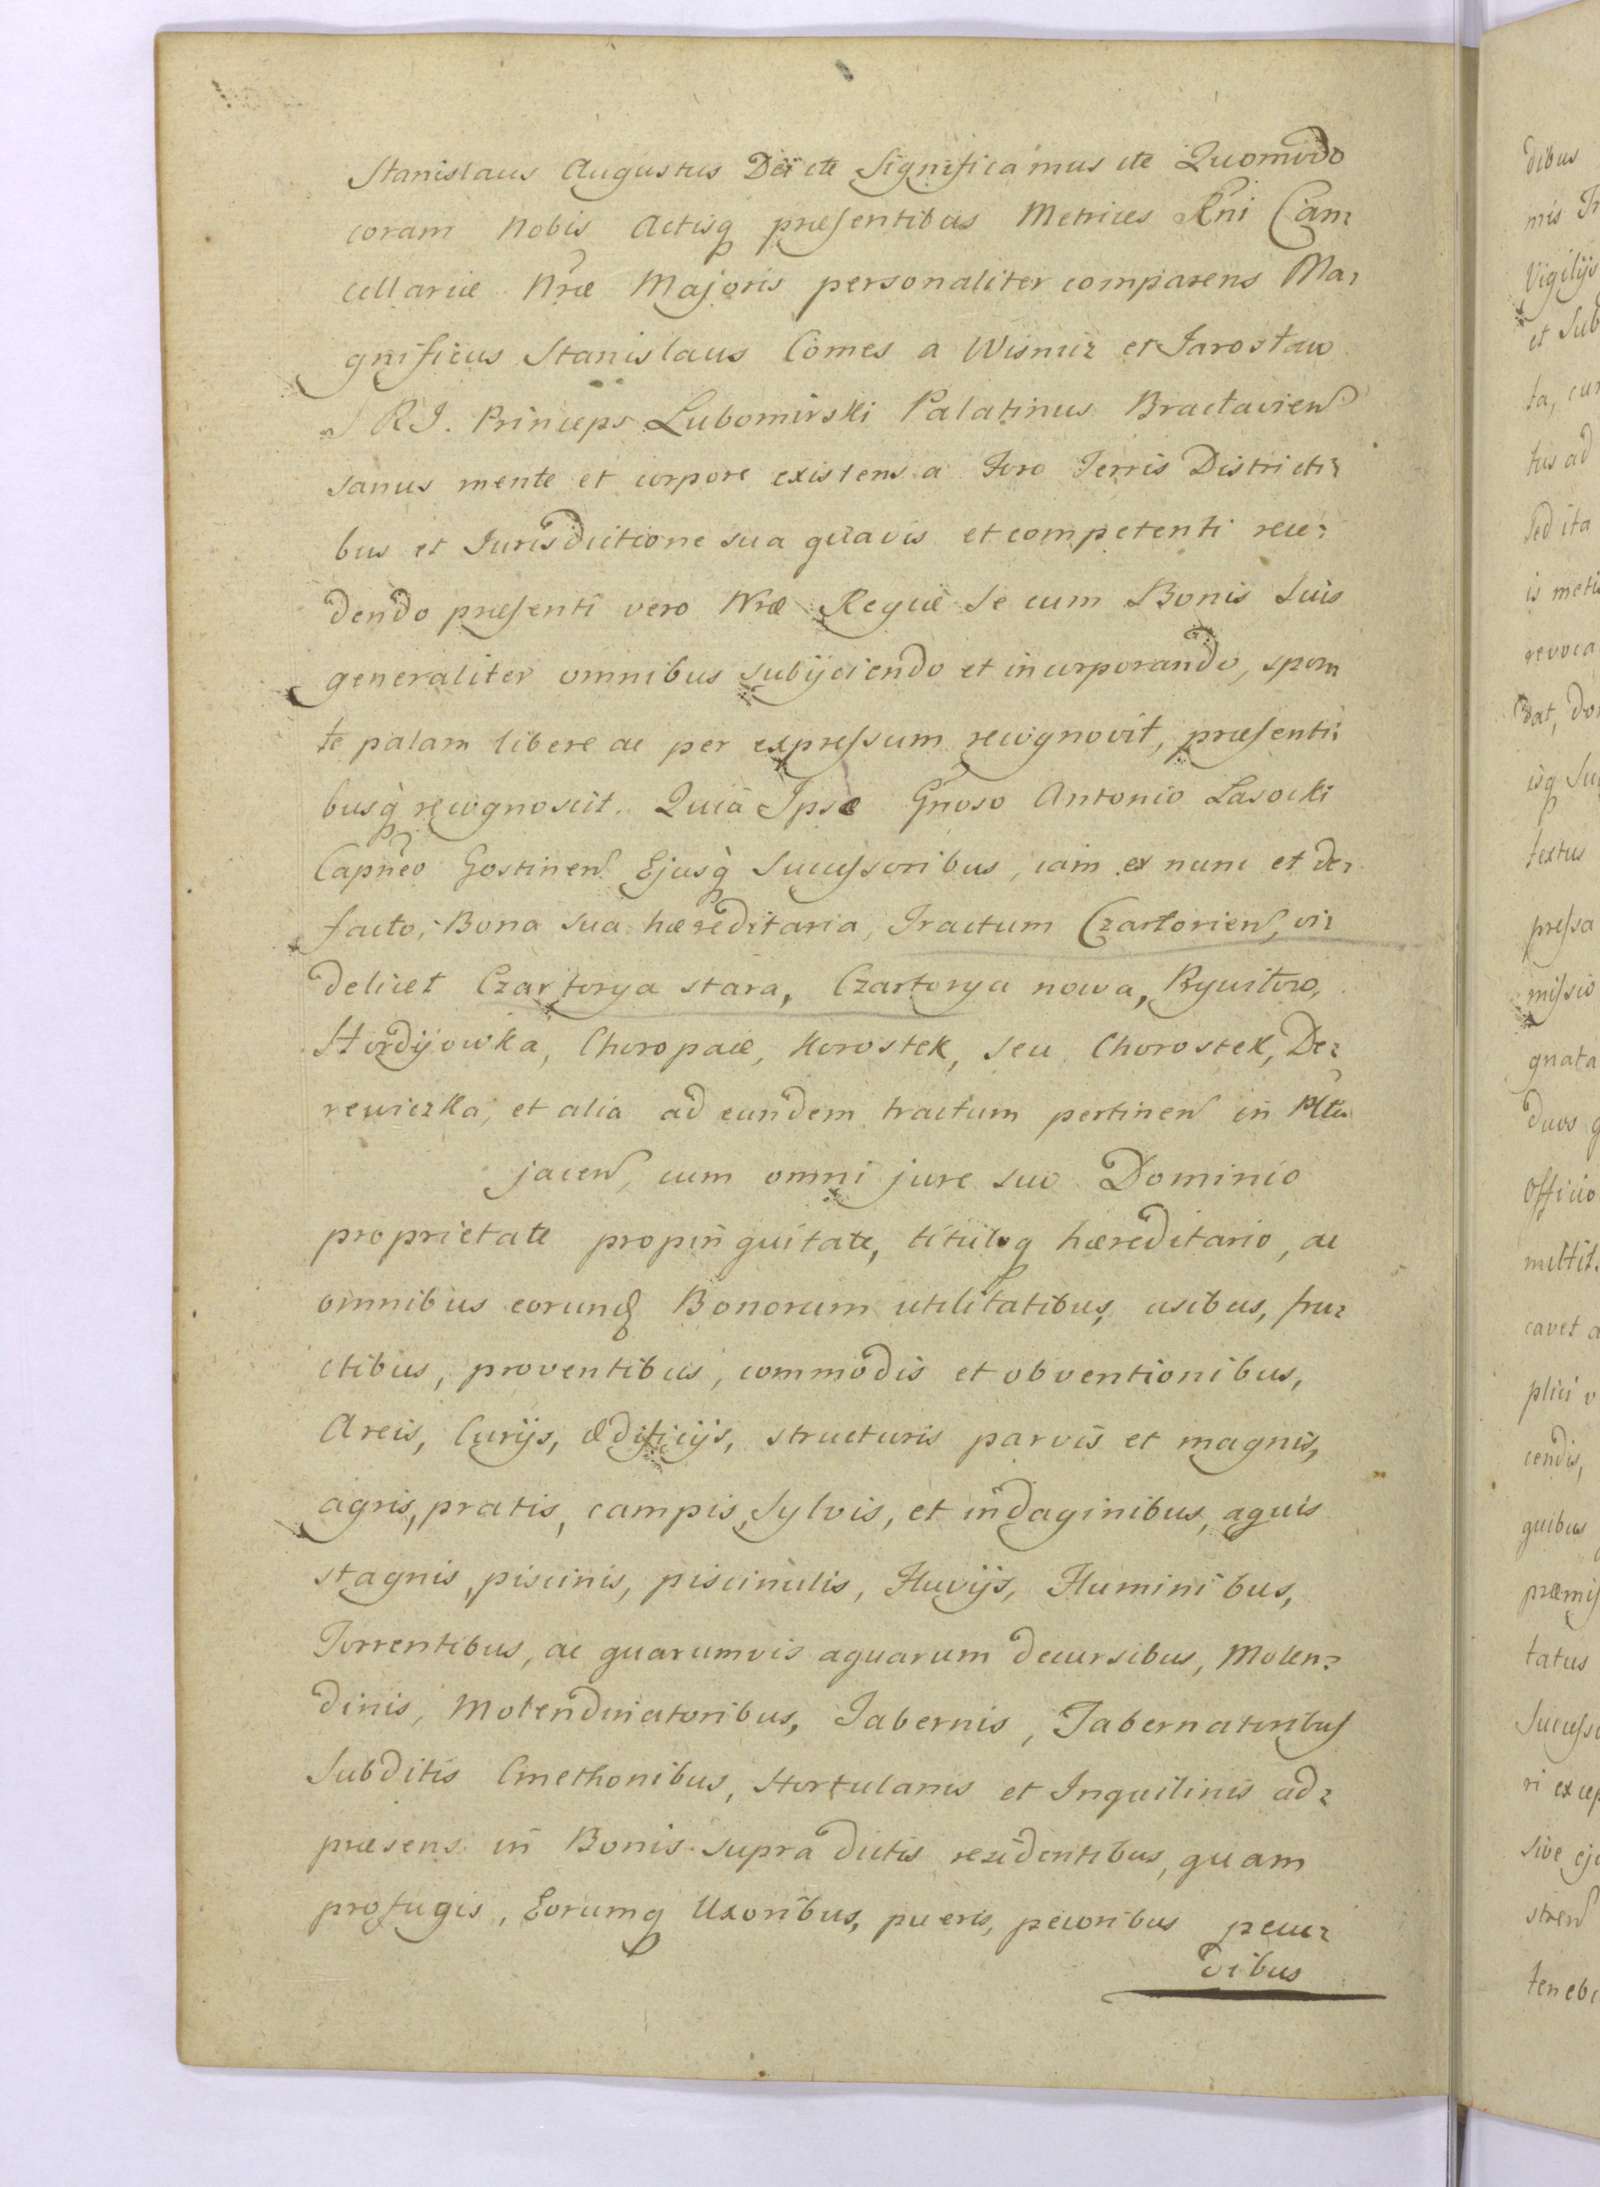 Stanislaus Augustus Dei etc Significamus etc Quomodo
coram Nobis Actisq præsentibus Metrices Rni Can:
cellariæ Nræ Majoris personaliter comparens Ma:
gnificus Stanislaus Comes a Wisnicz et Jarosław
S R J. Princeps Lubomirski Palatinus Bracłavien
sanus mente et corpore existens a Foro Terris Districti:
bus et Jurisdictione sua quavis et competenti rece:
dendo præsenti vero Nræ Regiæ Se cum Bonis Suis
generaliter omnibus subijciendo et incorporando, spon
te palam libere ac per expressum recognovit, præsenti:
busq recognoscit. Quia Ipse Gnoso Antonio Lasocki
Capneo Gostinen Ejusq Successoribus, iam ex nunc et de:
facto, Bona sua hæreditaria, Tractum Czartorien, vi:
delicet Czartorya stara, Czartorya nowa,
Hordijowka, Choropacie, Horostek, seu Chorostek, De:
rewiczka, et alia ad eundem tractum pertinen in Pltu
jacen, cum omni jure suo Dominio
proprietate propinquitate, tituloq hæreditario, ac
omnibus eorund Bonorum utilitatibus, usibus, fru:
ctibus, proventibus, commodis et obventionibus,
Areis, Curijs, ædificijs, structuris parvis et magnis,
agris, pratis, campis, Sylvis, et indaginibus, aquis
stagnis, piscinis, piscinulis, Fluvijs, Fluminibus,
Torrentibus, ac quarumvis aquarum decursibus, Molen:
dinis, Molendinatoribus, Tabernis, Tabernatoribus
Subditis Cmethonibus, Hortulanis et Inquilinis ad:
præsens in Bonis supra dictis residentibus, quam
profugis, Eorumq Uxoribus, pueris, pecoribus pecu:
dibus
dibus
mis
Vigilijs
et Sub
ta, cum
tus ad
sed ita
is
revoca
textus
pressa
missio
gnata
duos
Officio
mittit.
cavet
plici
cendis,
quibus
præmis
tatus
Successo
ri excep
sive eju
stren
tenebi